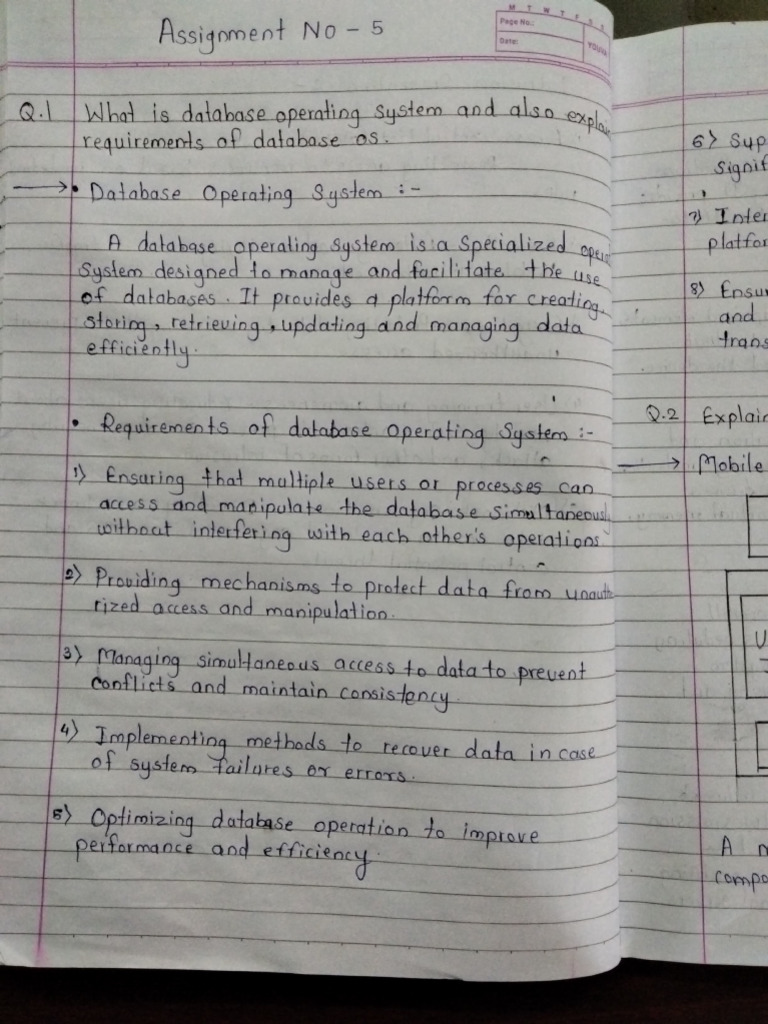 Assignment No - 5
M T W T F S S
Page No.:
Date:
YOUVA
Q.1 What is database operating system and also
requirements of database os.
• Database Operating System :-
A database operating system is a Specialized
System designed to manage and facilitate the use
of databases. It provides a platform for creating,
storing, retrieving, updating and managing data
efficiently.
• Requirements of database operating System :-
1) Ensuring that multiple users or processes can
access and manipulate the database simultaneously
without interfering with each other's operations
2) Providing mechanisms to protect data from unautho
rized access and manipulation.
3) Managing simultaneous access to data to prevent
conflicts and maintain consistency.
4) Implementing methods to recover data in case
of system failures or errors.
5) Optimizing database operation to improve
performance and efficiency.
6) Sup
Signif
7) Inter
platfor
8) Ensur
and
trans
Q.2 Explain
Mobile
U
A m
compo